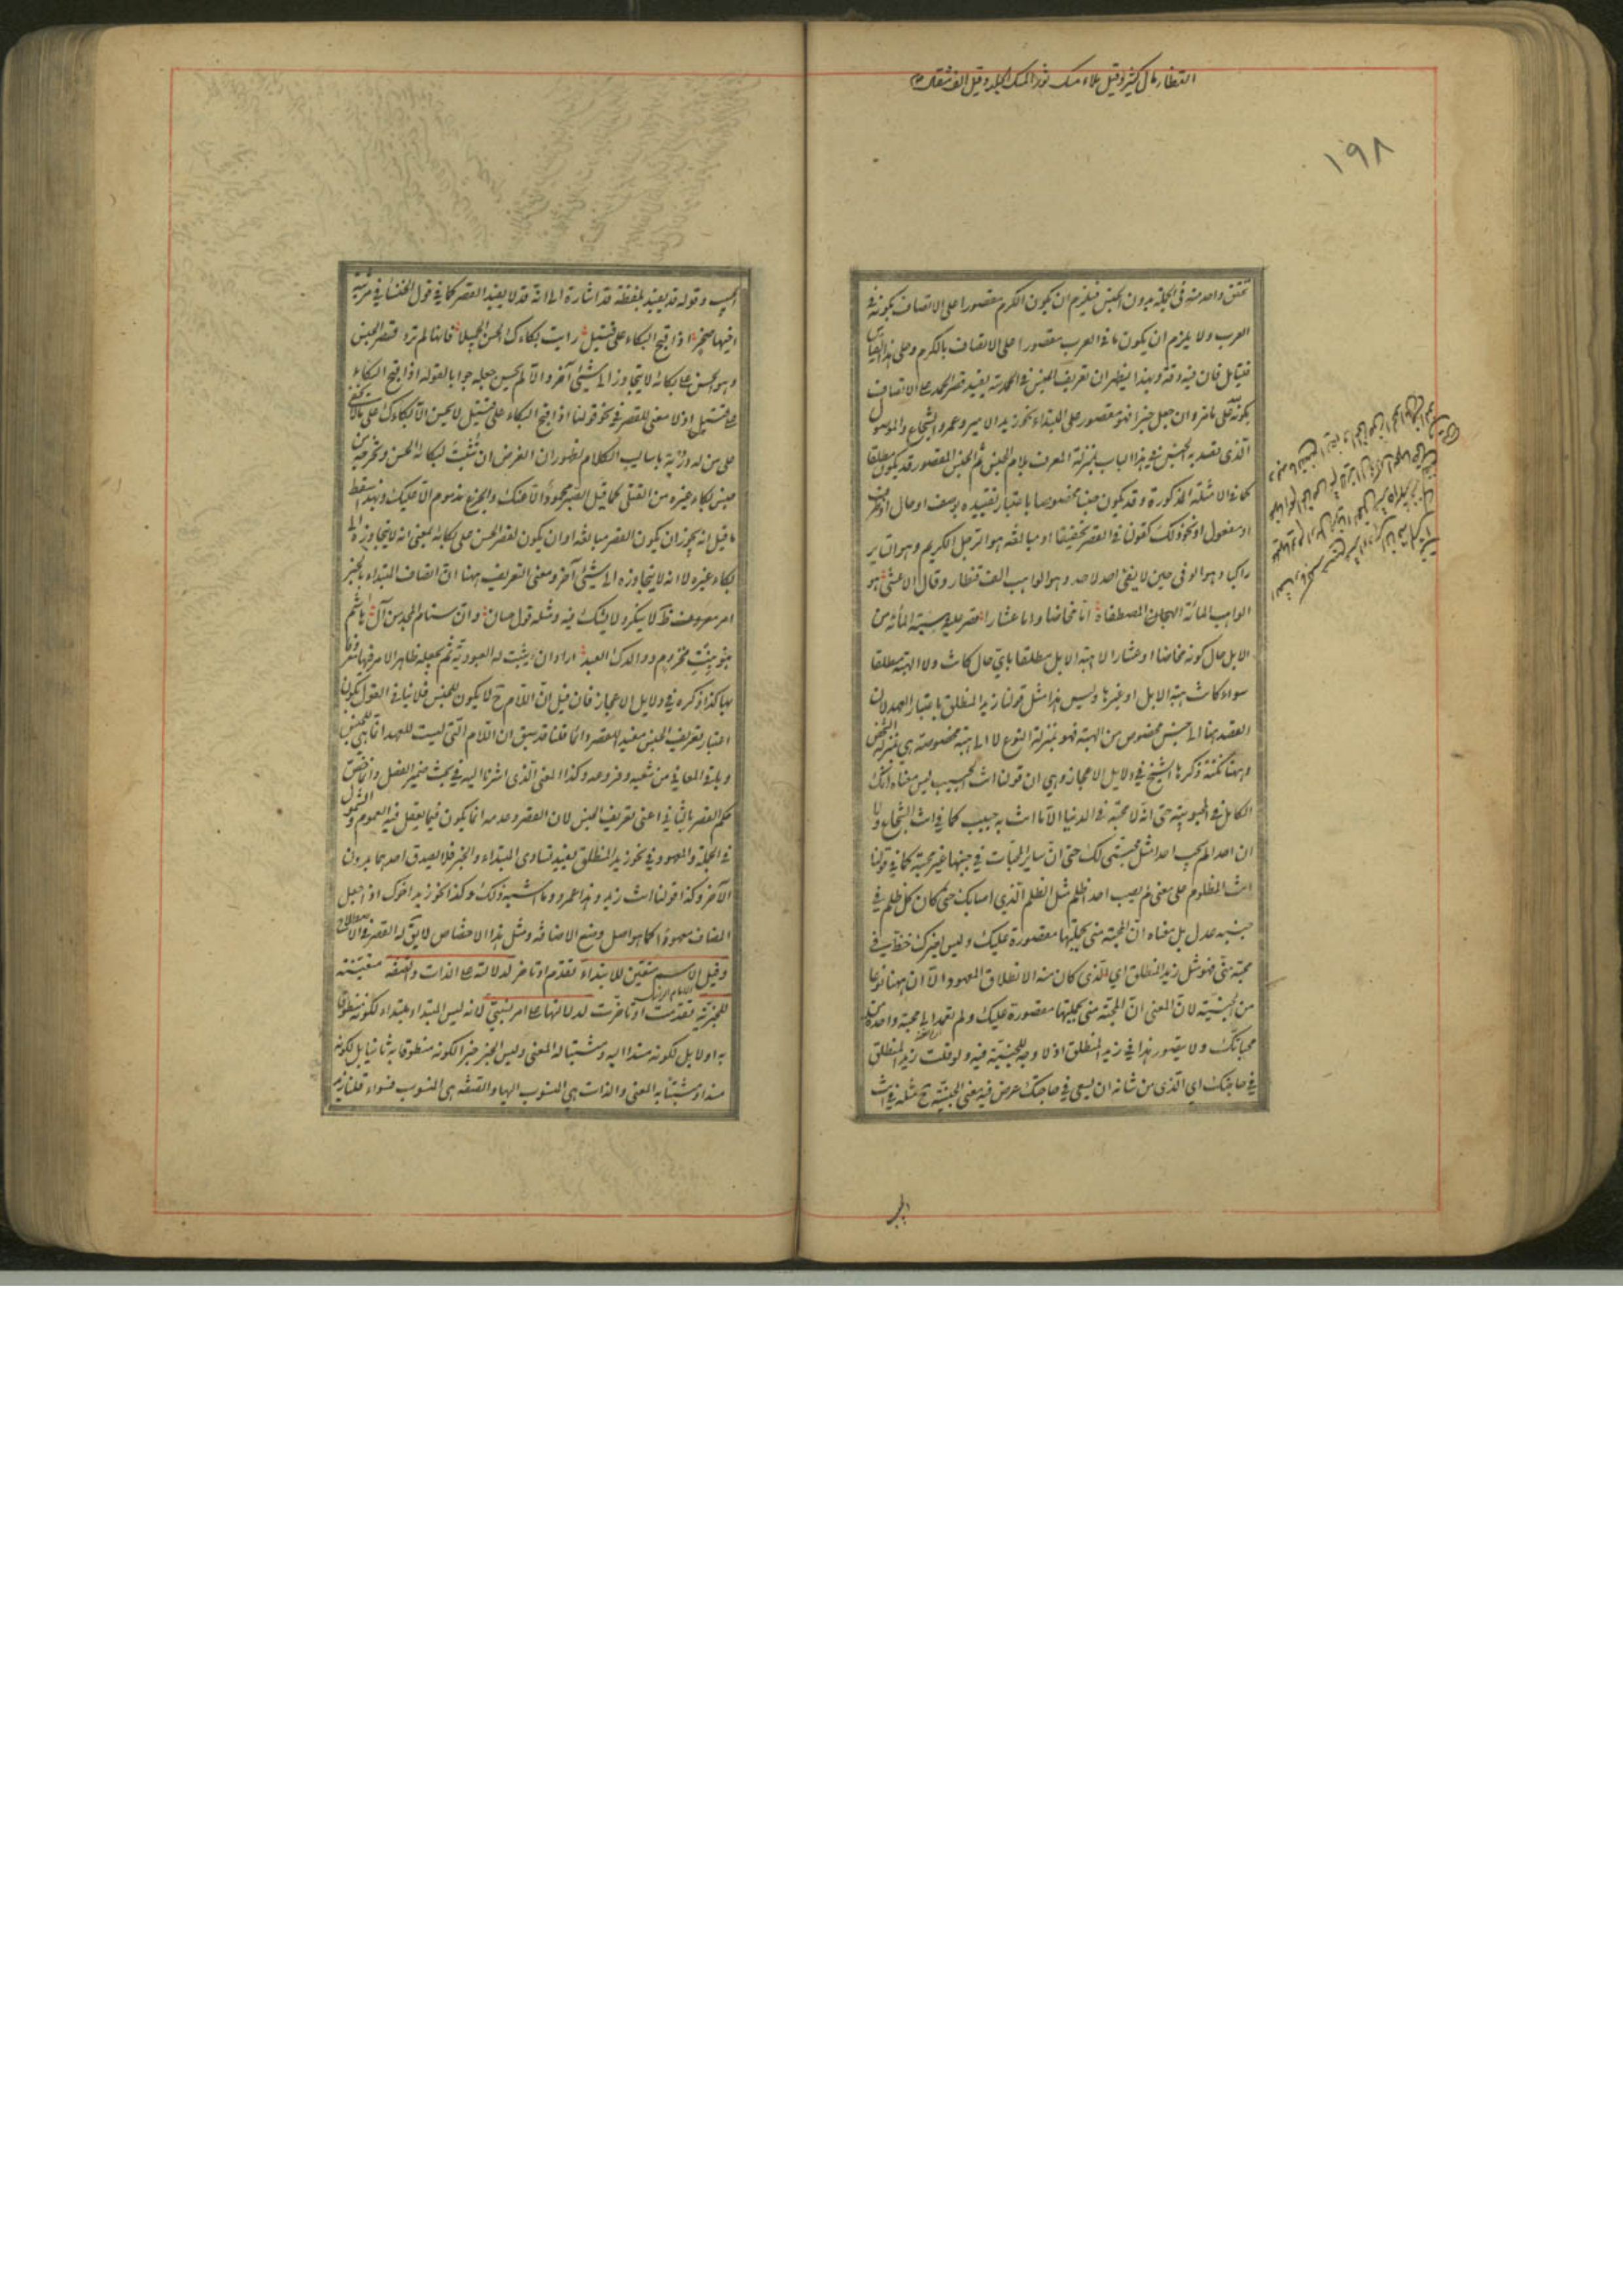 القنطار مال كثير وقيل ملاء مسك ثور المسك الجلد وقيل الف مثقال
١٩٨
تحقق واحد منه فى الجملة بدون الجنس فيلزم ان يكون الكرم مقصورا على الاتصاف بكونه فى
العرب ولا يلزم ان يكون ما فى العرب مقصورا على الاتصاف بالكرم وعلى هذا القياس
فتأمل فان فيه دقة وبهذا يظهر ان تعريف الجنس فى الحمد لله يفيد قصر الحمد على الاتصاف
بكونه لله على ما مر وان جعل خبرا فهو مقصور على المبتداء نحو زيد الامير وعمرو الشجاع والموصول
الذى قصد به الجنس فى هذا الباب بمنزلة المعرف بلام الجنس ثم الجنس المقصور قد يكون مطلقا
كما فى الامثلة المذكورة وقد يكون جنسا مخصوصا باعتبار تقييده بوصف او حال او ظرف
او مفعول او نحو ذلك كقولنا فى القصر تحقيقا او مبالغة هو الرجل الكريم وهو السائر
راكبا وهو الوفى حين لا يفى احد لاحد وهو الواهب الف قنطار وقال الاعشى هو
الواهب المائة الهجان المصطفاة اما مخاضا واما عشارا قصر عليه هبة المائة من
الابل حال كونه مخاضا او عشارا لا هبة الابل مطلقا باى حال كانت ولا الهبة مطلقا
سواء كانت هبة الابل او غيرها وليس هذا مثل قولنا زيد المنطلق باعتبار العهد لان
القصد ههنا الى جنس مخصوص من الهبة فهو بمنزلة النوع لا الى هبة مخصوصة هى بمنزلة الشخص
وههنا نكتة ذكرها الشيخ فى دلايل الاعجاز وهى ان قولنا انت الحبيب ليس معناه انك
الكامل فى المحبوبية حتى انه لا محبة فى الدنيا الا ما انت به حبيب كما فى انت الشجاع ولا
ان احدا لم يحب احدا مثل محبتى لك حتى ان ساير المحبات فى جنبها غير محبة كما فى قولنا
انت المظلوم على معنى لم يصب احدا ظلم مثل الظلم الذى اصابك حتى كان كل ظلم فى
جنبه عدل بل معناه ان المحبة منى بجملتها مقصورة عليك وليس لغيرك حظ فى
محبة منى فهو مثل زيد المنطلق اى الذى كان منه الانطلاق المعهود الا ان ههنا نوعا
من الجنسية لان المعنى ان المحبة منى بجملتها مقصورة عليك ولم تعمد الى محبة واحدة من
محباتك ولا يتصور هذا فى زيد المنطلق اذ لا وجه للجنسية فيه ولو قلت زيد المنطلق
فى حاجتك اى الذى من شانه ان يسعى فى حاجتك عرض فيه معنى الجنسية ح مثله فى انت
الحبيب وقوله قد يفيد بلفظة قد اشارة الى انه قد لا يفيد القصر كما فى قول الخنساء فى مرثية
اخيها صخر اذا قبح البكاء على قتيل رايت بكاءك الحسن الجميلا فانها لم ترد قصر الجنس
وهو الحسن على بكائه لا يتجاوز الى شئ آخر والا لم يحسن جعله جوابا لقوله اذا قبح البكاء
على قتيل اذ لا معنى للقصر فى نحو قولنا اذا قبح البكاء على قتيل لا يحسن الا بكاءك على ما لا يخفى
على من له دربة باساليب الكلام لظهور ان الغرض ان تثبت لبكائه الحسن وتخرجه من
جنس بكاء غيره من القتلى كما قيل الصبر محمود الا عنك والجزع مذموم الا عليك وبهذا سقط
ما قيل انه يجوز ان يكون القصر مبالغة او ان يكون لقصر الحسن على بكائه بمعنى انه لا يتجاوزه الى
بكاء غيره لا انه لا يتجاوزه الى شئ آخر ومعنى التعريف ههنا ان اتصاف المبتداء بالخبر
امر معروف ظ لا ينكر ولا يشك فيه ومثله قول حسان وان سنام المجد من آل هاشم
بنو بنت مخزوم ووالدك العبد اراد ان يثبت له العبودية ثم يجعله ظاهر الامر فيها معروفا
بها كذا ذكره فى دلايل الاعجاز فان قيل ان اللام ح لا يكون للجنس فلا ينافى القول بكون
اعتبار تعريف الجنس مفيد للقصر دائما قلنا قد سبق ان اللام التى ليست للعهد انما هى للجنس
وباقى المعانى من شعبه وفروعه وكذا المعنى الذى اشرنا اليه فى بحث ضمير الفصل وانما خص
حكم القصر بالثانى اعنى تعريف الجنس لان القصر وعدمه انما يكون فيما يعقل فيه العموم والشمول
فى الجملة والمعهود فى نحو زيد المنطلق يفيد تساوى المبتداء والخبر فلا يصدق احدهما بدون
الآخر وكذا قولنا انت زيد وهذا عمرو وما اشبه ذلك وكذا نحو زيد اخوك اذا جعل
المضاف معهودا كما هو اصل وضع الاضافة ومثل هذا الاختصاص لا يقال له القصر فى الاصطلاح
وقيل الاسم متعين للابتداء تقدم او تاخر لدلالته على الذات والصفة متعينة
للخبرية تقدمت او تاخرت لدلالتها على امر نسبى لانه ليس المبتداء مبتداء لكونه منطوقا
به اولا بل لكونه مسندا اليه ومثبتا له المعنى وليس الخبر خبرا لكونه منطوقا به ثانيا بل لكونه
مسندا ومثبتا به المعنى والذات هى المنسوب اليها والصفة هى المنسوب فسواء قلنا زيد